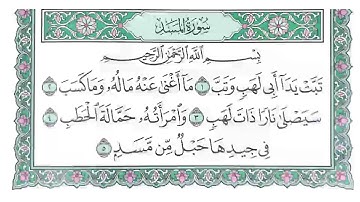 سُورَةُ المَسَدِ
بِسْمِ اللَّهِ الرَّحْمَٰنِ الرَّحِيمِ
تَبَّتْ يَدَآ أَبِى لَهَبٍ وَتَبَّ ١ مَآ أَغْنَىٰ عَنْهُ مَالُهُۥ وَمَا كَسَبَ ٢
سَيَصْلَىٰ نَارًا ذَاتَ لَهَبٍ ٣ وَٱمْرَأَتُهُۥ حَمَّالَةَ ٱلْحَطَبِ ٤
فِى جِيدِهَا حَبْلٌ مِّن مَّسَدٍۭ ٥